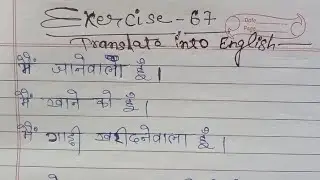 Exercise-67
Date
Page
Translate into English
मैं जानेवाला हूँ।
मैं खाने को हूँ।
मैं गाड़ी खरीदनेवाला हूँ।